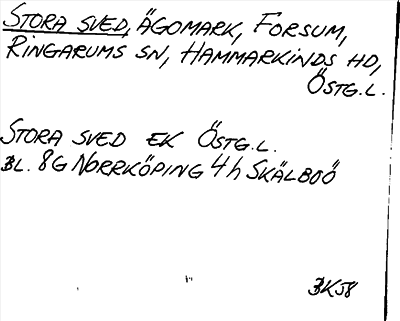 STORA SVED, ÄGOMARK, FORSUM,
RINGARUMS SN, HAMMARKINDS HD,
ÖSTG.L.
STORA SVED EK ÖSTG.L.
BL. 8G NORRKÖPING 4h SKÄLBOÖ
BK58